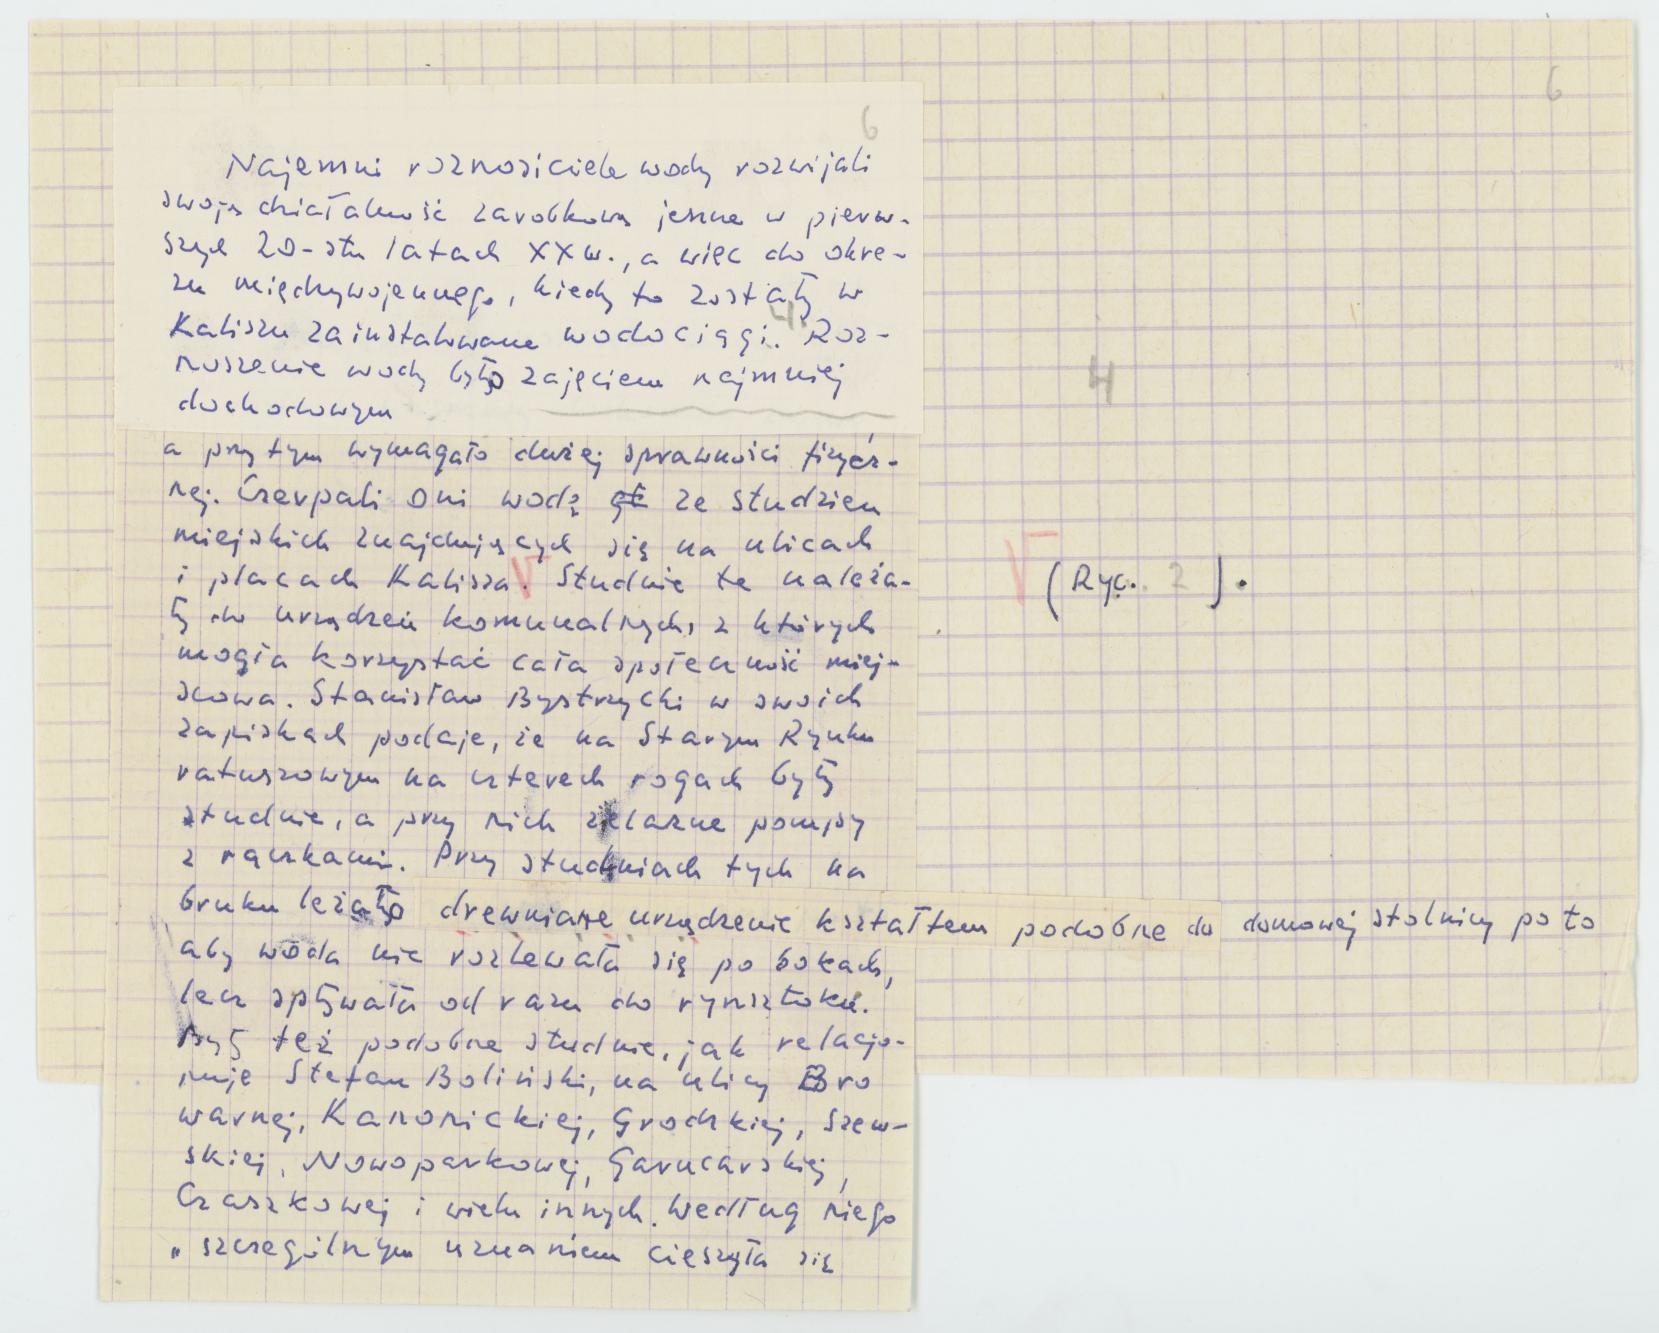 6
6
Najemni roznosiciele wody rozwijali
swoją działalność zarobkową jeszcze w pierw-
szych 20-stu latach XX w., a więc do okre-
su międzywojennego, kiedy to zostały w
Kaliszu zainstalowane wodociągi. 4. Roz-
noszenie wody było zajęciem najmniej
dochodowym
4
a przy tym wymagało dużej sprawności fizycz-
nej. Czerpali oni wodę ze studzien
miejskich znajdujących się na ulicach
i placach Kalisza √. Studnie te należa-
√ (Ryc. 2).
ły do urządzeń komunalnych, z których
mogła korzystać cała społeczność miej-
scowa. Stanisław Bystrzycki w swoich
zapiskach podaje, że na Starym Rynku
ratuszowym na czterech rogach były
studnie, a przy nich żelazne pompy
z rączkami. Przy studniach tych na
bruku leżało drewniane urządzenie kształtem podobne do domowej stolnicy po to
aby woda nie rozlewała się po bokach,
lecz spływała od razu do rynsztoku.
Były też podobne studnie, jak relacjo-
nuje Stefan Boliński, na ulicy Bro
warnej, Kanonickiej, Grodzkiej, Szew-
skiej, Nowoparkowej, Garncarskiej,
Czaszkowej i wielu innych. Według niego
„szczególnym uznaniem cieszyła się